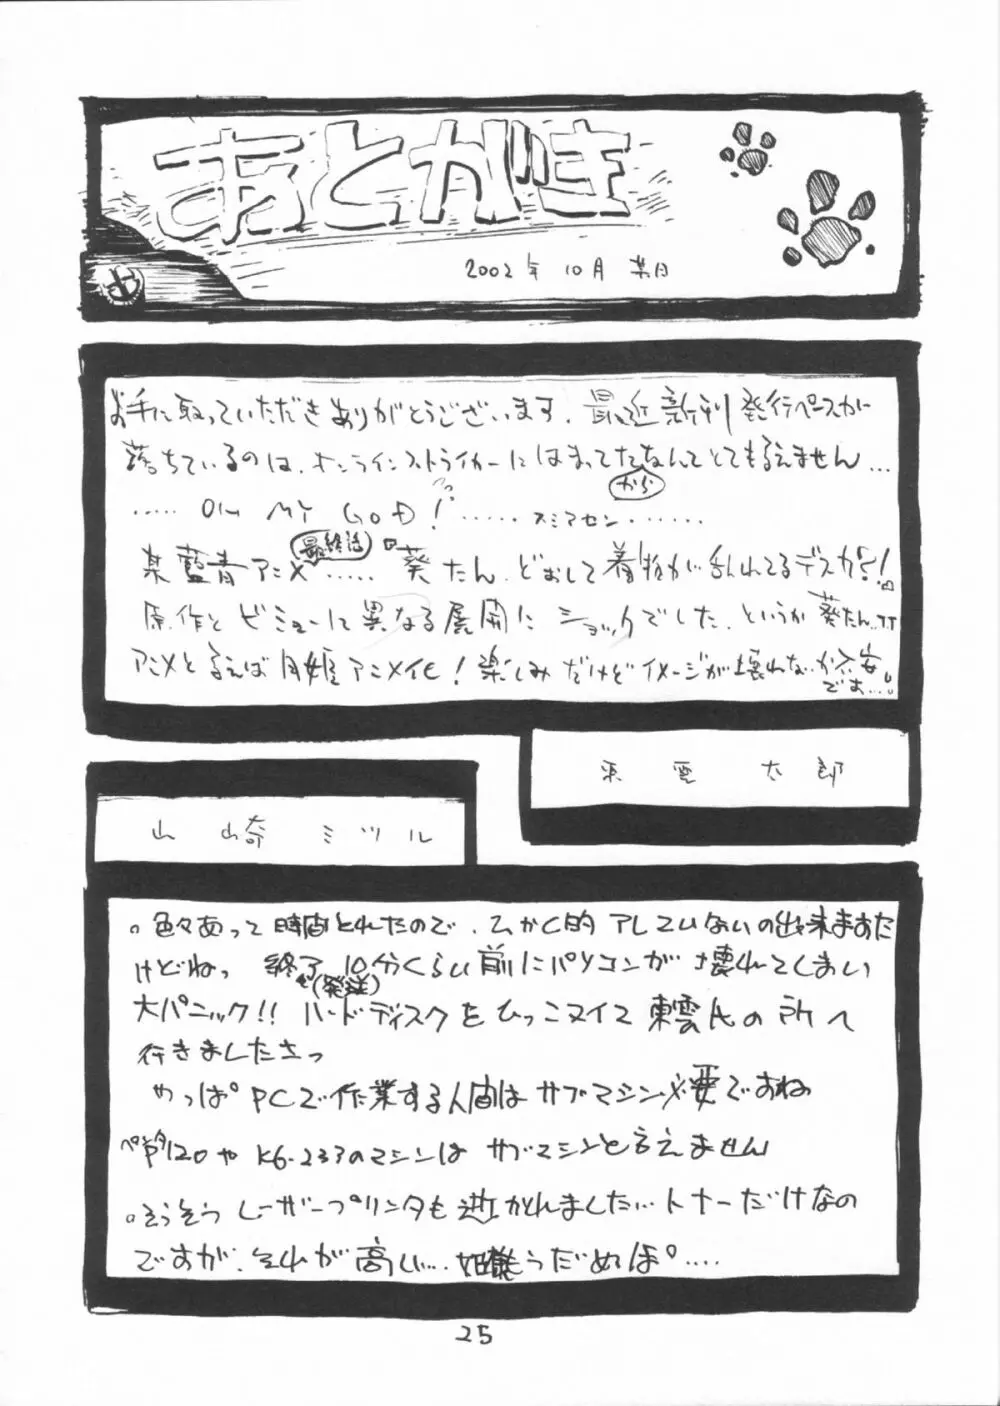 あとがき
2002年10月某日
お手に取っていただきありがとうございます。最近新刊発行ペースが
落ちているのは、オンラインストライカーにはまってたからなんてとても言えません…
……OH MY GOD!……スミマセン……
某藍青アニメ最終話……葵たん、どおして着物が乱れてるデスカ?!
原作とビミョーに異なる展開にショックでした、というか葵たん…
アニメと言えば月姫アニメ化!楽しみだけどイメージが壊れないか不安
です…。
東雲太郎
山崎ミツル
。色々あって時間とれたので、
けどねっ 終了(発送)10分くらい前にパソコンが壊れてしまい
大パニック!!ハードディスクをひっこヌイて東雲氏の所へ
行きましたさっ
やっぱPCで作業する人間はサブマシン必要ですね
120やK6-233のマシンはサブマシンと言えません
。そうそうレーザープリンタも逝かれました…トナーだけなの
ですが、それが高い…俺もうだめぽ…
25